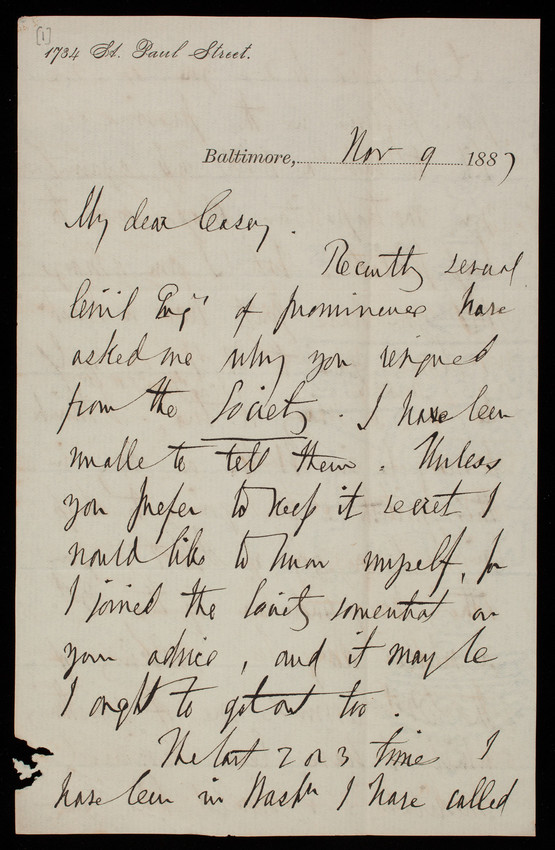 [1]
1734 St. Paul Street.
Baltimore, Nov 9 1887
My dear Casey.
Recently several
Civil Engrs of prominence have
asked me why you resigned
from the Society. I have been
unable to tell them. Unless
you prefer to keep it secret I
would like to know myself, for
I joined the Society somewhat on
your advice, and it may be
I ought to get out too.
The last 2 or 3 times I
have been in Washn I have called